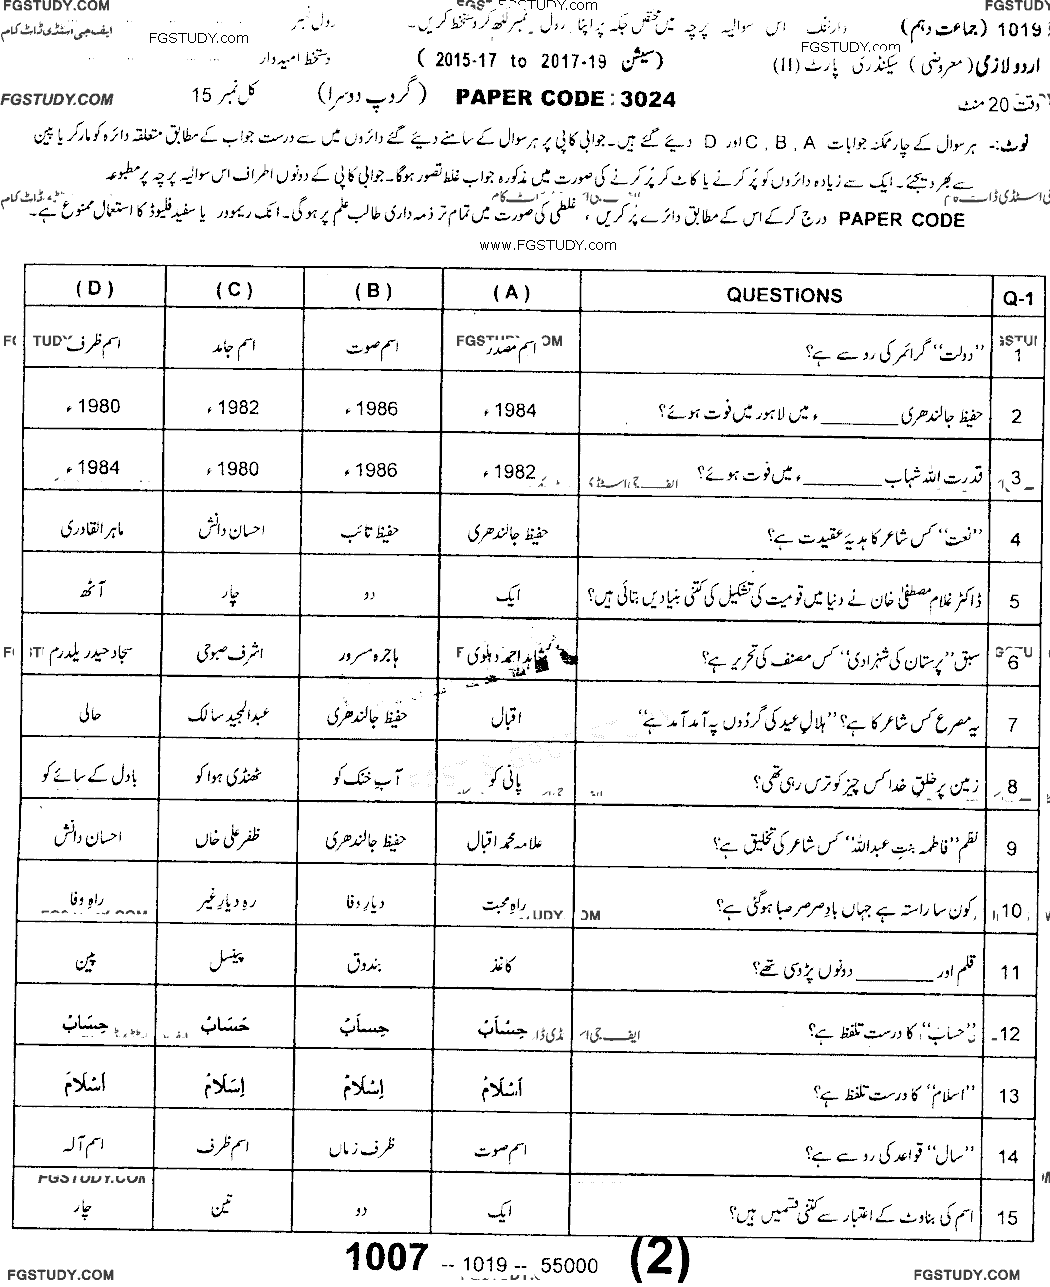 FGSTUDY.COM FGSTUDY.com FGSTUDY.COM
1019 (جماعت دہم) وارننگ اس سوالیہ پرچہ میں مختص جگہ پر اپنا رول نمبر لکھ کر دستخط کریں۔ رول نمبر FGSTUDY.com ایف جی اسٹڈی ڈاٹ کام
FGSTUDY.com
اردو لازمی (معروضی) سیکنڈری پارٹ (II) (سیشن 2015-17 to 2017-19) دستخط امیدوار
وقت 20 منٹ PAPER CODE : 3024 (گروپ دوسرا) کل نمبر 15 FGSTUDY.COM
نوٹ:- ہر سوال کے چار ممکنہ جوابات A ، B ، C اور D دیے گئے ہیں۔ جوابی کاپی پر ہر سوال کے سامنے دیے گئے دائروں میں سے درست جواب کے مطابق متعلقہ دائرہ کو مارکر یا پین
سے بھر دیجئے۔ ایک سے زیادہ دائروں کو پُر کرنے یا کاٹ کر پُر کرنے کی صورت میں مذکورہ جواب غلط تصور ہوگا۔ جوابی کاپی کے دونوں اطراف اس سوالیہ پرچہ پر مطبوعہ
PAPER CODE درج کر کے اس کے مطابق دائرے پُر کریں ، غلطی کی صورت میں تمام تر ذمہ داری طالب علم پر ہوگی۔ انک ریموور یا سفید فلیوڈ کا استعمال ممنوع ہے۔
www.FGSTUDY.com
Q-1 QUESTIONS (A) (B) (C) (D)
1 ’’دولت‘‘ گرائمر کی رو سے ہے؟ اسم مصدر اسم صوت اسم جامد اسم ظرف
2 حفیظ جالندھری ________ ء میں لاہور میں فوت ہوئے؟ 1984ء 1986ء 1982ء 1980ء
3 قدرت اللہ شہاب ________ ء میں فوت ہوئے؟ 1982ء 1986ء 1980ء 1984ء
4 ’’نعت‘‘ کس شاعر کا ہدیۂ عقیدت ہے؟ حفیظ جالندھری حفیظ تائب احسان دانش ماہر القادری
5 ڈاکٹر غلام مصطفیٰ خان نے دنیا میں قومیت کی تشکیل کی کتنی بنیادیں بتائی ہیں؟ ایک دو چار آٹھ
6 سبق ’’پرستان کی شہزادی‘‘ کس مصنف کی تحریر ہے؟ شاہد احمد دہلوی ہاجرہ مسرور اشرف صبوحی سجاد حیدر یلدرم
7 یہ مصرع کس شاعر کا ہے؟ ’’ہلالِ عید کی گردُوں پہ آمد آمد ہے‘‘ اقبال حفیظ جالندھری عبدالمجید سالک حالی
8 زمین پر خلقِ خدا کس چیز کو ترس رہی تھی؟ پانی کو آبِ خنک کو ٹھنڈی ہوا کو بادل کے سائے کو
9 نظم ’’فاطمہ بنتِ عبداللہ‘‘ کس شاعر کی تخلیق ہے؟ علامہ محمد اقبال حفیظ جالندھری ظفر علی خاں احسان دانش
10 کون سا راستہ ہے جہاں بادِ صرصر صبا ہو گئی ہے؟ راہِ محبت دیارِ وفا رہِ دیارِ غیر راہِ وفا
11 قلم اور ________ دونوں پڑوسی تھے؟ کاغذ بندوق پینسل پین
12 ’’حساب‘‘ کا درست تلفظ ہے؟ حِسْاَبْ حِساَبْ حَسَابْ حِسَابْ
13 ’’اسلام‘‘ کا درست تلفظ ہے؟ اَسْلَامْ اِسْلَامْ اِسَلَامْ اَسْلَامَ
14 ’’سال‘‘ قواعد کی رو سے ہے؟ اسم صوت ظرف زماں اسم ظرف اسم آلہ
15 اسم کی بناوٹ کے اعتبار سے کتنی قسمیں ہیں؟ ایک دو تین چار
1007 -- 1019 -- 55000 (2)
FGSTUDY.COM FGSTUDY.COM